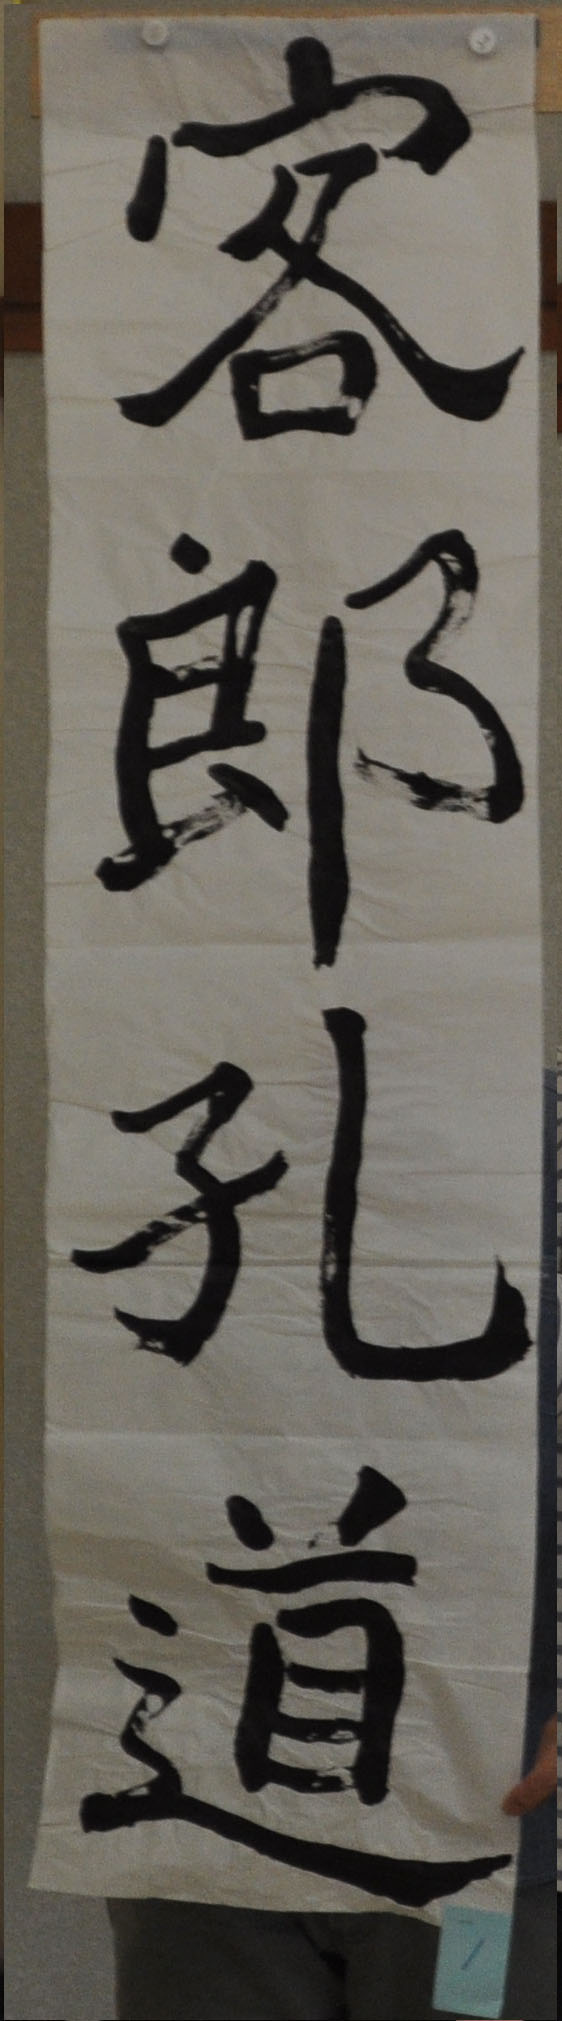 客郎孔道